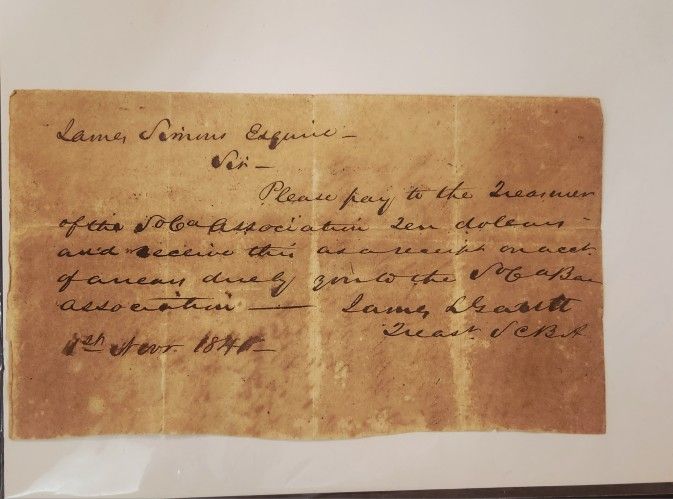 James Simons Esquire –
Sir –
Please pay to the Treasurer
of the So Ca Association Ten dollars
and receive this as a receipt on acct.
of arrears due by you to the So Ca Bar
association —— James
Treast. S C B A
Novr. 184